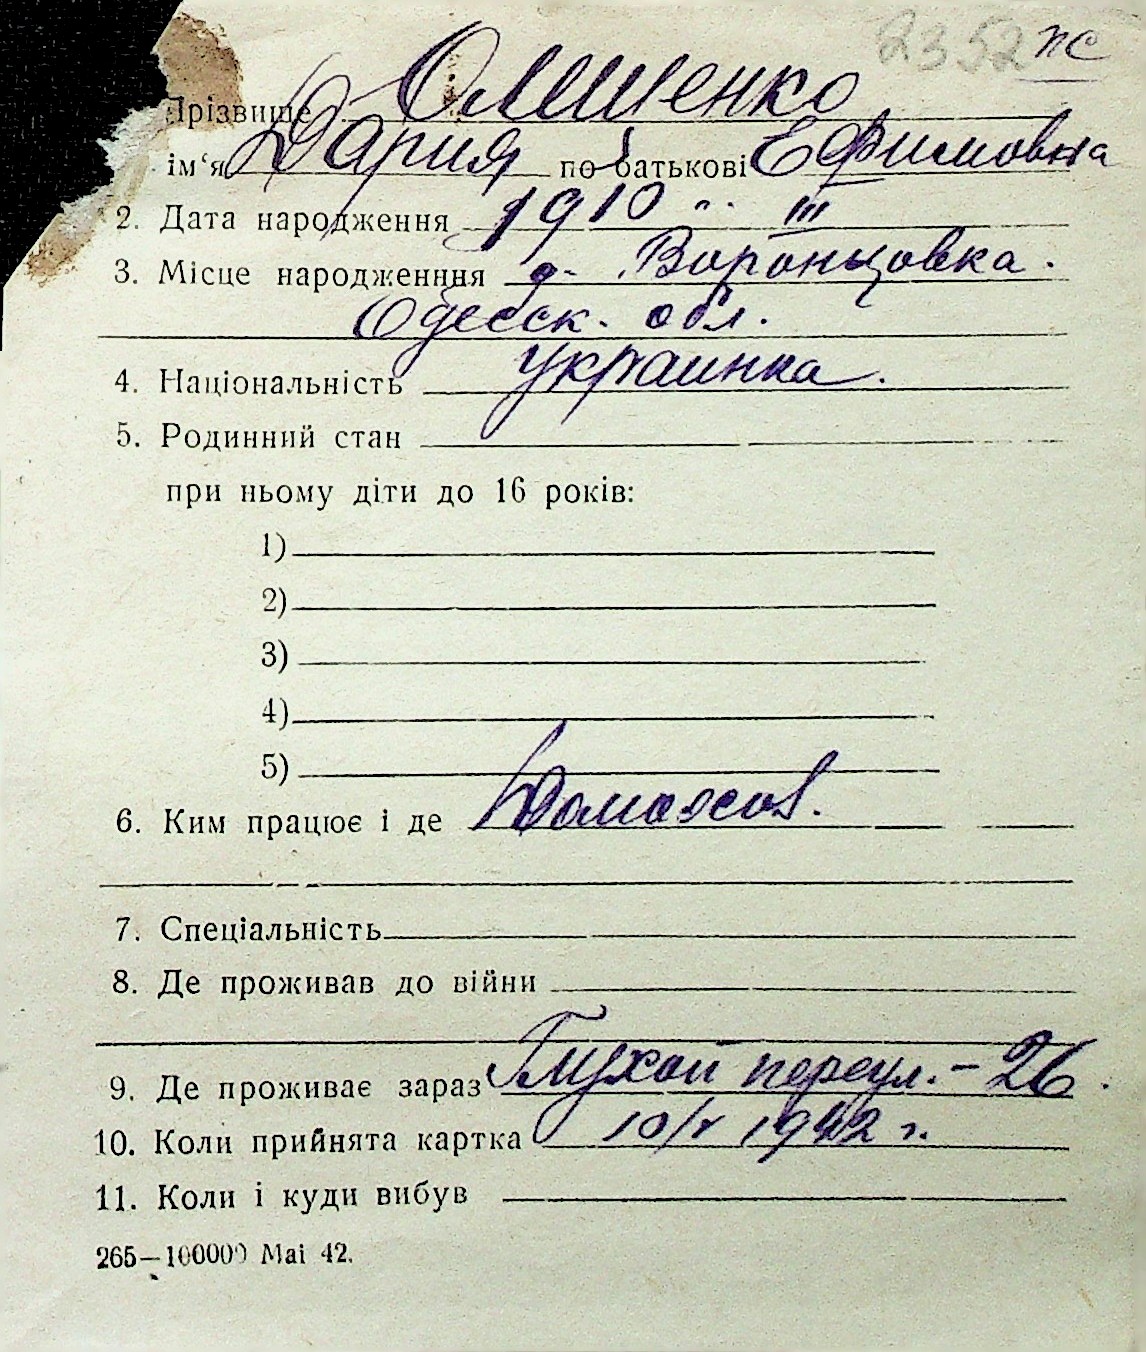 2352 пс
Прізвище Олешенко
ім‘я Дария по батькові Ефимовна
2. Дата народження 1910 " . III
3. Місце народженння д. Воронцовка.
Одесск. обл.
4. Національність украинка.
5. Родинний стан
при ньому діти до 16 років:
1)
2)
3)
4)
5)
6. Ким працює і де Домахоз.
7. Спеціальність
8. Де проживав до війни
9. Де проживає зараз Глухой переул. – 26.
10. Коли прийнята картка 10/V 1942 г.
11. Коли і куди вибув
265—100000 Маі 42.